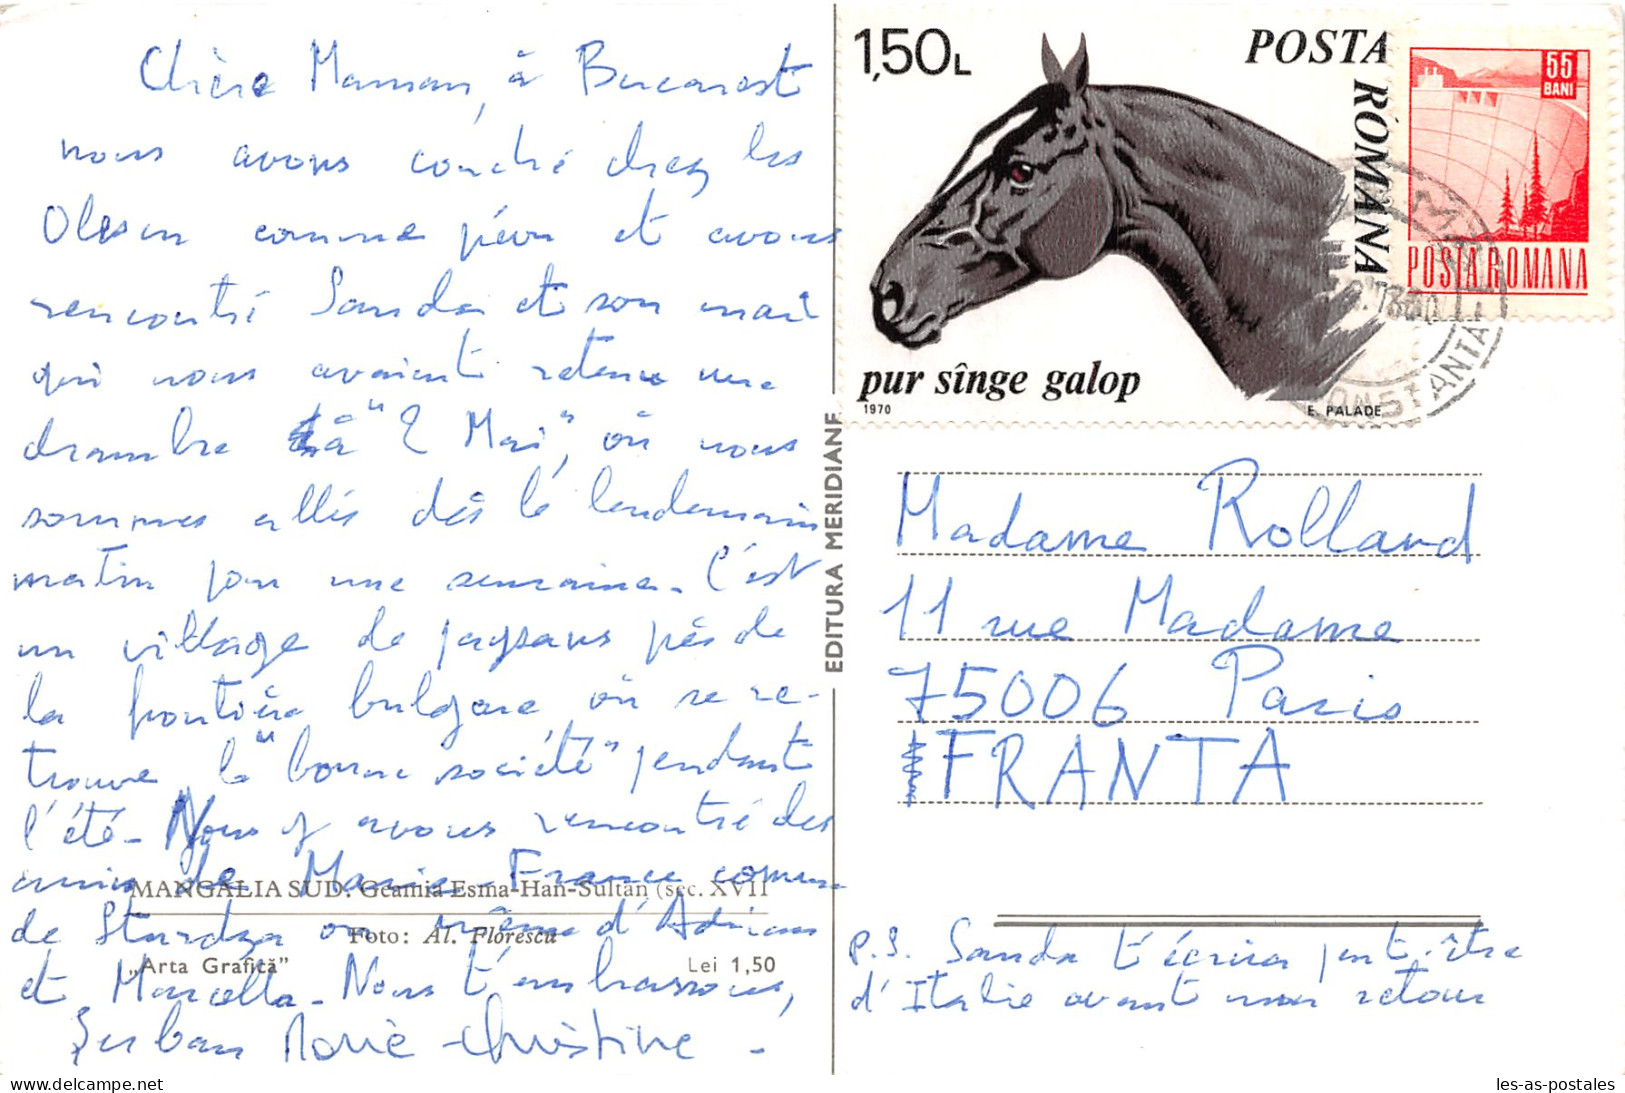 Chère Maman, à Bucarest
nous avons couché chez les
Olesen comme prévu et avons
rencontré Sanda et son mari
qui nous avaient retenu une
chambre à "2 Mai", où nous
sommes allés dès le lendemain
matin pour une semaine. C'est
un village de paysans près de
la frontière bulgare où se re-
trouve la "bonne société" pendant
l'été. Nous y avons rencontré des
amis de Marie-France comme
de Sturdza ou même d'Adrian
et Marcella. Nous t'embrassons,
Şerban Marie-Christine.
MANGALIA SUD: Geamia Esma-Han-Sultan (sec. XVII
Foto: Al. Florescu
„Arta Grafică"
Lei 1,50
EDITURA MERIDIANE
1,50L
POSTA ROMANA
pur sînge galop
1970
E. PALADE
55 BANI
POSTA ROMANA
CONSTANTA
Madame Rolland
11 rue Madame
75006 Paris
FRANTA
P.S. Sanda t'écrira peut-être
d'Italie avant mon retour
les-as-postales.delcampe.net
les-as-postales